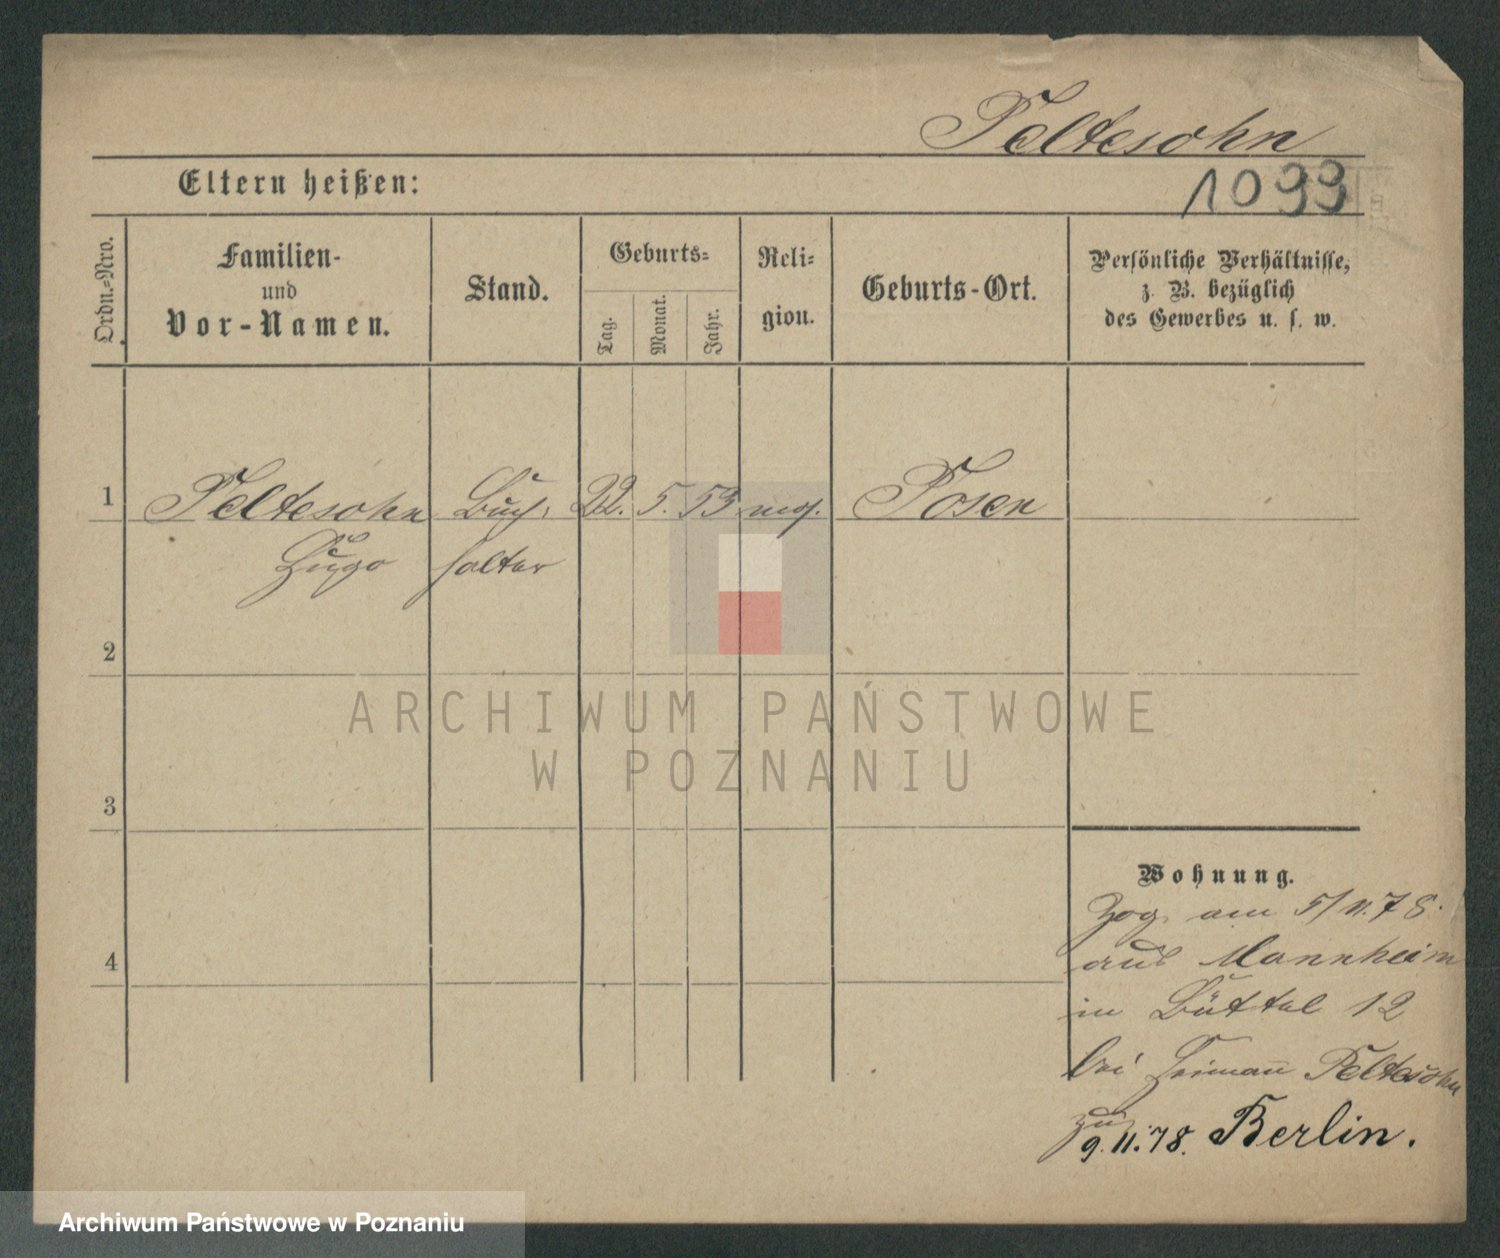 Peltesohn
Eltern heißen:
1099
Ordn.=Nro.
Familien-
und
Vor-Namen.
Stand.
Geburts=
Tag.
Monat.
Jahr.
Reli=
gion.
Geburts-Ort.
Persönliche Verhältnisse,
z. B. bezüglich
des Gewerbes u. s. w.
1 Peltesohn Buch- 22. 5. 53 mos. Posen
Hugo halter
2
3
4
ARCHIWUM PAŃSTWOWE
W POZNANIU
Wohnung.
Zog am 5/11.78.
aus Mannheim
in Büttel 12
bei Heimann Peltesohn
9.11.78. Berlin.
Archiwum Państwowe w Poznaniu